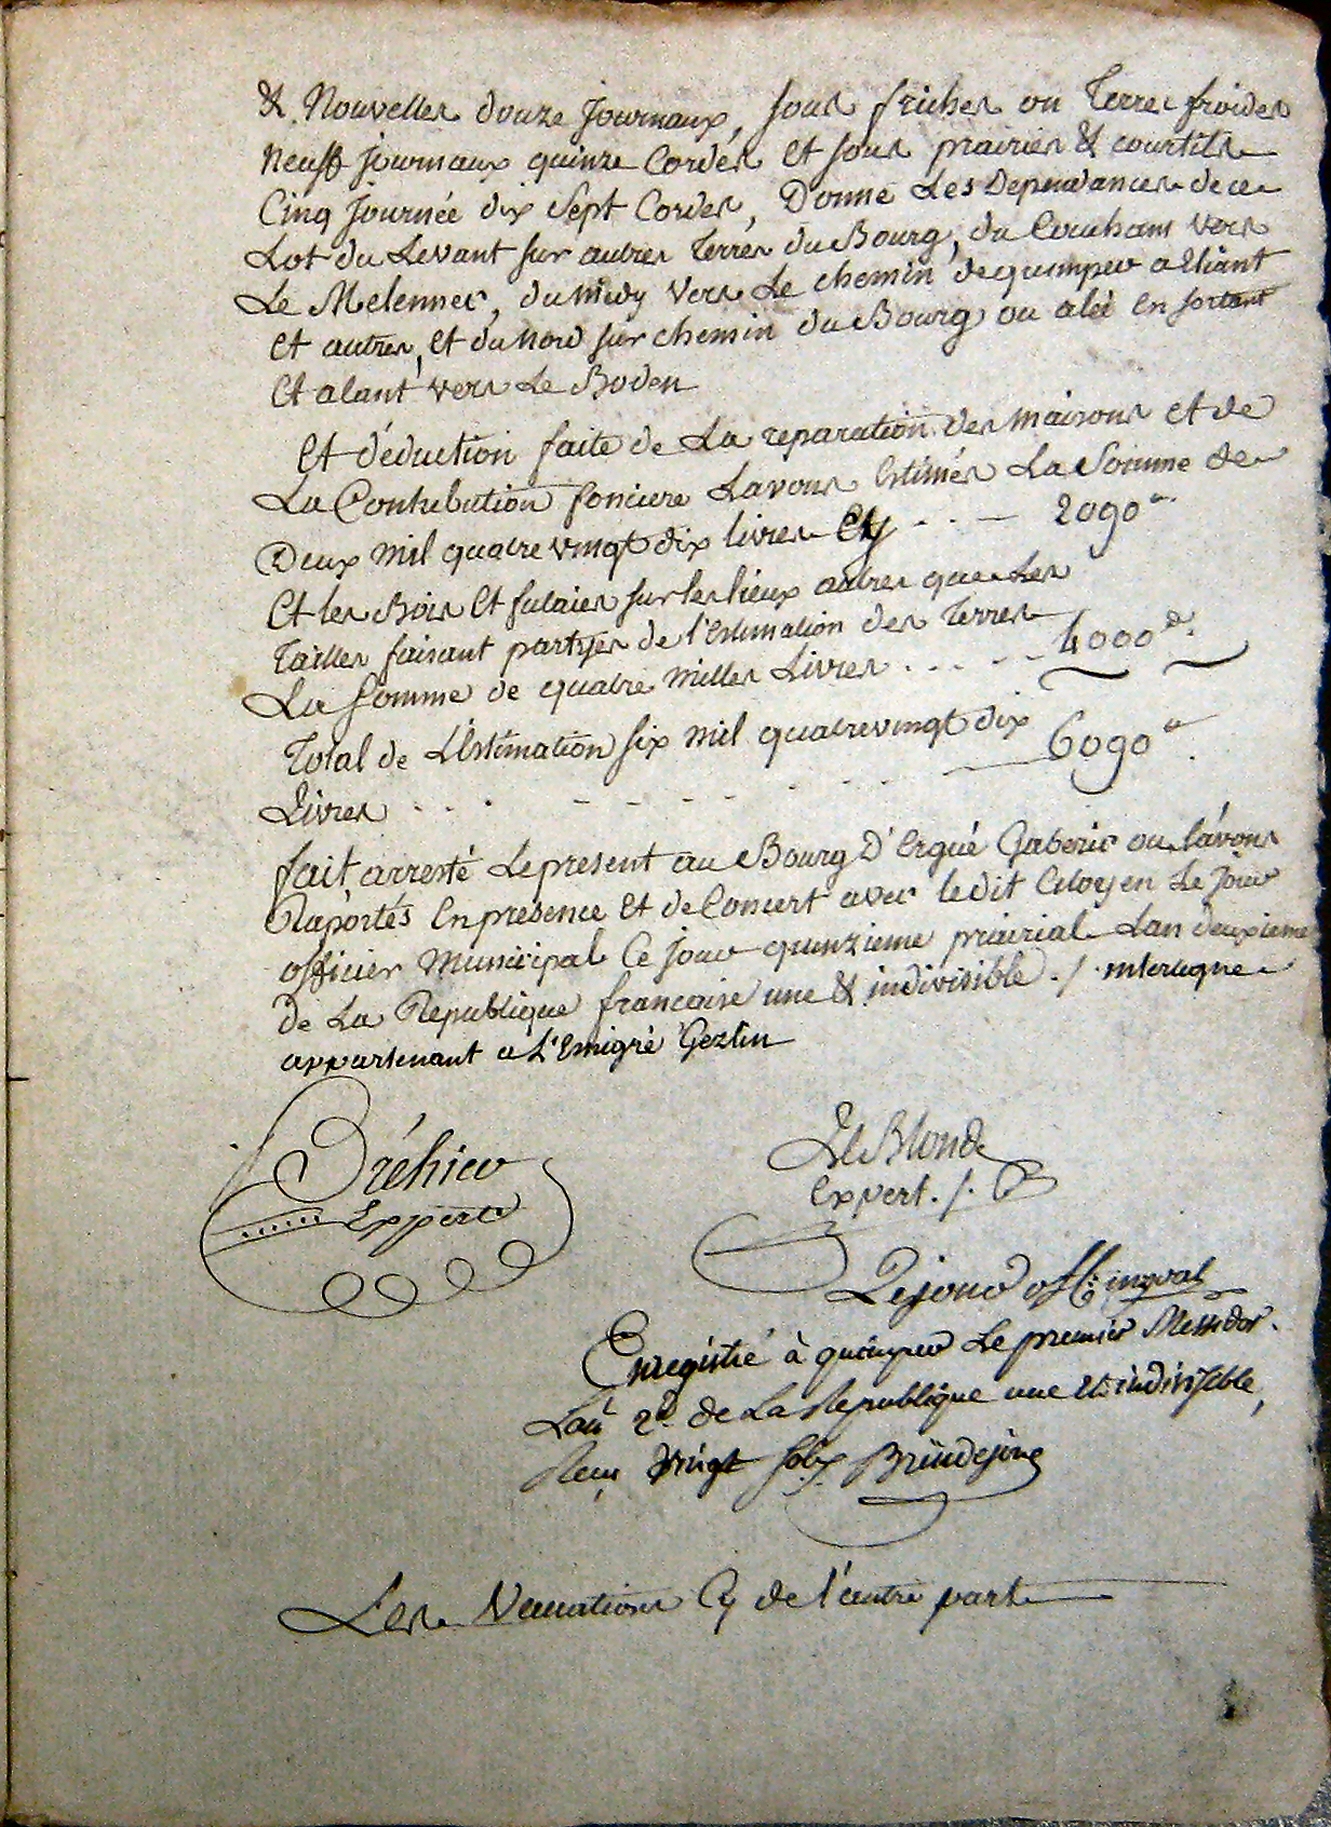 & Nouvelles douze journaux, sous friches ou Terres froides
Neuff journaux quinze Cordes et sous prairies & courtils
Cinq journée dix Sept Cordes, Donne Les Dependances de ce
Lot du Levant sur autres Terres du Bourg, du Couchant vers
Le Melennec, du Midy vers Le chemin de quimper a Eliant
Et autres, et du Nord sur chemin du Bourg ou alée en sortant
Et alant vers Le Boden
Et déduction faite de La reparation des maisons et de
La Contribution fonciere Lavons Estimés La Somme de
Deux mil quatre vingt dix livres Cy . . . — 2090ᵗᵗ
Et les Bois Et futaies sur les lieux autres que Les
Tailles faisant partyes de l'Estimation des Terres
La Somme de quatre milles Livres . . . . . 4000ᵗᵗ.
Total de L'Estimation six mil quatrevingt dix
Livres . . . - - - - - - - 6090ᵗᵗ.
fait, arresté Le present au Bourg D'Ergué Gaberic ou l'avons
Raportés En presence Et de Concert avec ledit Citoyen Le Jour
officier Municipal Ce jour quinzieme prairial Lan deuxieme
de La Republique francaise une & indivisible ./. interligne
appartenant a L'Emigré Geslin
Bréhier
Expert
Le Blond
Expert ./.
Lejour off: mpal
Enregistré à quimper Le premier Messidor.
Lan 2ᵈ. de La Republique une Et indivisible,
Reçu Vingt sols
Les Vacations Cy de l'autre part